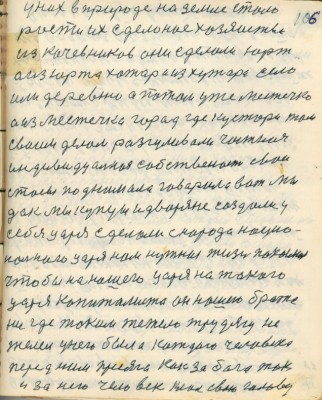 106
у них в природе на земле стало
рости их сделоное хозяйства
из качевников они сделали юрт
а из юрта хотара из хутара село
или деревню а потом уже местечко
а из местечка горад где кустарь там
своим делом разгуливали частная
индевидуалная собственость свои
столы поднимала говарила вот мы
дак мы купцы и дворяне создали у
себя царя сделали с народа нацио-
налного царя нам нужна
чтобы на нашего царя на такого
царя копиталиста он нашего брата
ни где таким тяжело трудягу не
желел у него была каждого человека
перед ним присяга как за бога так
и за него человек клал свою голову